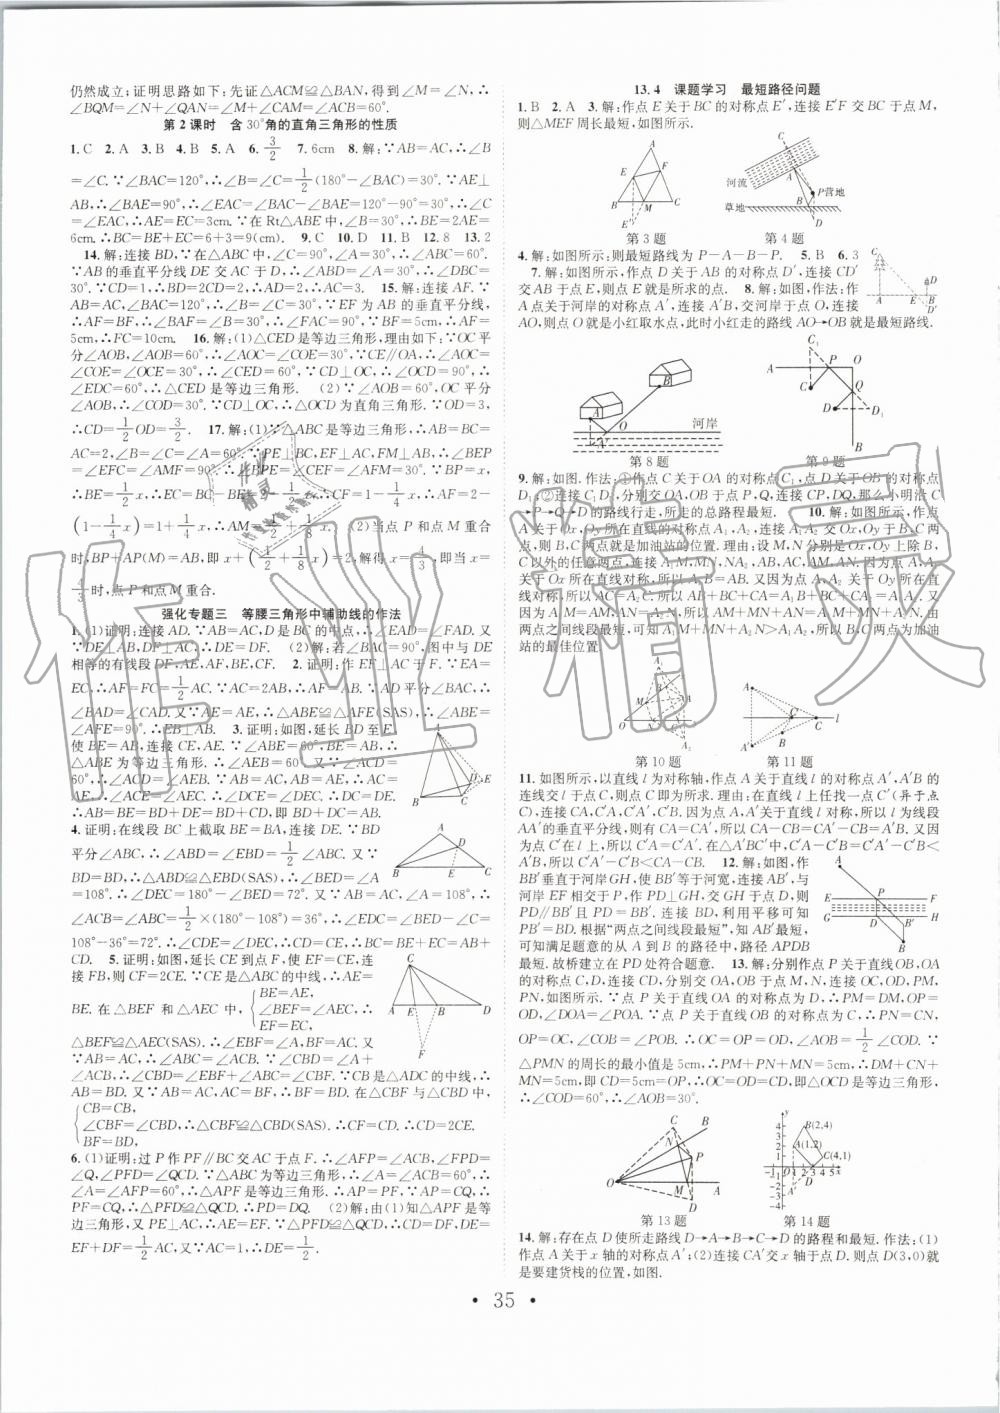 仍然成立;证明思路如下:先证△ACM≌△BAN,得到∠M=∠N,∴
∠BQM=∠N+∠QAN=∠M+∠CAM=∠BAC=60°.
第2课时 含30°角的直角三角形的性质
1.C 2.A 3.B 4.B 5.A 6.3/2 7.6cm 8.解:∵AB=AC,∴∠B
=∠C.∵∠BAC=120°,∴∠B=∠C=1/2(180°-∠BAC)=30°.∵AE⊥
AB,∴∠BAE=90°,∴∠EAC=∠BAC-∠BAE=120°-90°=30°,∴∠C
=∠EAC,∴AE=EC=3cm.∵在Rt△ABE中,∠B=30°,∴BE=2AE=
6cm,∴BC=BE+EC=6+3=9(cm). 9.C 10.D 11.B 12.8 13.2
14.解:连接BD,∵在△ABC中,∠C=90°,∠A=30°,∴∠ABC=60°.
∵AB的垂直平分线DE交AC于D,∴AD=BD,∴∠ABD=∠A=
30°.∵CD=1,∴BD=2CD=2,∴AD=2,∴AC=3. 15.解:连接AF.∵
AB=AC,∠BAC=120°,∴∠B=∠C=30°.∵EF为AB的垂直平分线,
∴AF=BF,∴∠BAF=∠B=30°,∴∠FAC=90°.∵BF=5cm,∴AF=
5cm,∴FC=10cm. 16.解:(1)△CED是等边三角形,理由如下:∵OC平
分∠AOB,∠AOB=60°,∴∠AOC=∠COE=30°,∵CE∥OA,∴∠AOC=
∠COE=∠OCE=30°,∠CED=60°.∵CD⊥OC,∴∠OCD=90°,∴
∠EDC=60°,∴△CED是等边三角形. (2)∵∠AOB=60°,OC平分
∠AOB,∴∠COD=30°.∵CD⊥OC,∴△OCD为直角三角形.∵OD=3,
∴CD=1/2OD=3/2. 17.解:(1)∵△ABC是等边三角形,∴AB=BC=
AC=2,∠A=∠B=∠C=60°.∵PE⊥BC,EF⊥AC,FM⊥AB,∴∠BEP
=∠CFE=∠AMF=90°.
(1-1/4x)=1+1/4x,∴AM=1/2+1/8x. (2)当点P和点M重合
时,BP+AP(M)=AB,即x+(1/2+1/8x)=2,解得x=4/3,即当x=
4/3时,点P和点M重合.
强化专题三 等腰三角形中辅助线的作法
1.(1)证明:连接AD.∵AB=AC,D是BC的中点,∴∠EAD=∠FAD.又
∵DE⊥AB,DF⊥AC,∴DE=DF. (2)解:若∠BAC=90°,图中与DE
相等的有线段DF,AE,AF,BE,CF. 2.证明:作EF⊥AC于F.∵EA=
EC,∴AF=FC=1/2AC.∵AC=2AB,∴AF=AB.∵AD平分∠BAC,∴
∠BAD=∠CAD.又∵AE=AE,∴△ABE≌△AFE(SAS),∴∠ABE=
∠AFE=90°.∴EB⊥AB. 3.证明:如图,延长BD至E,
使BE=AB,连接CE,AE.∵∠ABE=60°,BE=AB,
∴△ABE为等边三角形.∴∠AEB=60°.又∵∠ACD=
60°,∴∠ACD=∠AEB.∵AB=AC,AB=AE,∴AC=
AE.∴∠ACE=∠AEC.∴∠DCE=∠DEC.∴DC=DE.
∴AB=BE=BD+DE=BD+CD,即BD+DC=AB.
4.证明:在线段BC上截取BE=BA,连接DE.∵BD
平分∠ABC,∴∠ABD=∠EBD=1/2∠ABC.又∵
BD=BD,∴△ABD≌△EBD(SAS).∴∠BED=∠A=
108°.∴∠DEC=180°-∠BED=72°.又∵AB=AC,∠A=108°,∴
∠ACB=∠ABC=1/2×(180°-108°)=36°,∴∠EDC=∠BED-∠C=
108°-36°=72°.∴∠CDE=∠DEC,∴CD=CE,∴BC=BE+EC=AB+
CD. 5.证明:如图,延长CE到点F,使EF=CE,连
接FB,则CF=2CE.∵CE是△ABC的中线,∴AE=
BE.在△BEF和△AEC中,
BE=AE,
∠BEF=∠AEC,∴
EF=EC,
△BEF≌△AEC(SAS).∴∠EBF=∠A,BF=AC.又
∵AB=AC,∴∠ABC=∠ACB.∵∠CBD=∠A+
∠ACB,∴∠CBD=∠EBF+∠ABC=∠CBF.∵CB是△ADC的中线,∴
AB=BD.又∵AB=AC,AC=BF,∴BF=BD.在△CBF与△CBD中,
CB=CB,
∠CBF=∠CBD,∴△CBF≌△CBD(SAS).∴CF=CD.∴CD=2CE.
BF=BD,
6.(1)证明:过P作PF∥BC交AC于点F.∴∠AFP=∠ACB,∠FPD=
∠Q,∠PFD=∠QCD.∵△ABC为等边三角形,∴∠A=∠ACB=60°,∴
∠A=∠AFP=60°,∴△APF是等边三角形.∴AP=PF.∵AP=CQ,∴
PF=CQ,∴△PFD≌△QCD,∴PD=DQ. (2)解:由(1)知△APF是等
边三角形,∵PE⊥AC,∴AE=EF.∵△PFD≌△QCD,∴DF=CD,∴DE=
EF+DF=1/2AC.又∵AC=1,∴DE=1/2.
13.4 课题学习 最短路径问题
1.B 2.A 3.解:作点E关于BC的对称点E′,连接E′F交BC于点M,
则△MEF周长最短,如图所示.
河流
P营地
草地
第3题
第4题
4.解:如图所示:则最短路线为P-A-B-P. 5.B 6.3
7.解:如图所示,作点D关于AB的对称点D′,连接CD′
交AB于点E,则点E就是所求的点. 8.解:如图所示:作
A点关于河岸的对称点A′,连接A′B,交河岸于点O,连接
AO,则点O就是小红取水点,此时小红走的路线AO→OB就是最短路线.
河岸
第8题
第9题
9.解:如图.作法:①作点C关于OA的对称点C₁,点D关于OB的对称点
D₁;②连接C₁D₁,分别交OA,OB于点P,Q,连接CP,DQ,那么小明沿C
→P→Q→D的路线行走,所走的总路程最短. 10.解:如图所示,作点
A关于Ox,Oy所在直线的对称点A₁,A₂,连接A₁A₂交Ox,Oy于B,C两
点,则B,C两点就是加油站的位置.理由:设M,N分别是Ox,Oy上除B,
C以外的任意两点,连接
两点之间线段最短,可知A₁M+MN+A₂N>A₁A₂,所以B,C两点为加油
站的最佳位置.
第10题
第11题
11.如图所示,以直线l为对称轴,作点A关于直线l的对称点A′,A′B的
连线交l于点C,则点C即为所求.理由:在直线l上任找一点C′(异于点
C),连接CA,C′A,C′A′,C′B.因为点A,A′关于直线l对称,所以l为线段
AA′的垂直平分线,则有CA=CA′,所以CA-CB=CA′-CB=A′B.又
因为点C′在l上,所以C′A=C′A′.在△A′BC′中,C′A-C′B=C′A′-C′B<
A′B,所以C′A′-C′B<CA-CB. 12.解:如图,作
BB′垂直于河岸GH,使BB′等于河宽,连接AB′,与
河岸EF相交于P,作PD⊥GH,交GH于点D,则
PD∥BB′且PD=BB′,连接BD,利用平移可知
PB′=BD.根据“两点之间线段最短”,知AB′最短,
可知满足题意的从A到B的路径中,路径APDB
最短.故桥建立在PD处符合题意. 13.解:分别作点P关于直线OB,OA
的对称点C,D,连接CD,分别交OA,OB于点M,N,连接OC,OD,PM,
PN,如图所示.∵点P关于直线OA的对称点为D,∴PM=DM,OP=
OD,∠DOA=∠POA.∵点P关于直线OB的对称点为C,∴PN=CN,
OP=OC,∠COB=∠POB.∴OC=OP=OD,∠AOB=1/2∠COD.∵
△PMN的周长的最小值是5cm,∴PM+PN+MN=5cm,∴DM+CN+
MN=5cm,即CD=5cm=OP,∴OC=OD=CD,即△OCD是等边三角形,
∴∠COD=60°,∴∠AOB=30°.
B(2,4)
A(1,2)
C(4,1)
第13题
第14题
14.解:存在点D使所走路线D→A→B→C→D的路程和最短.作法:(1)
作点A关于x轴的对称点A′;(2)连接CA′交x轴于点D.则点D(3,0)就
是要建货栈的位置,如图.
• 35 •